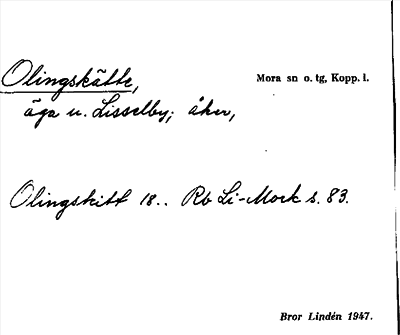 Olingskätte,
Mora sn o. tg, Kopp. l.
äga u. Lisselby; åker,
Olingskitt 18.. Rb Li-Mork s. 83.
Bror Lindén 1947.